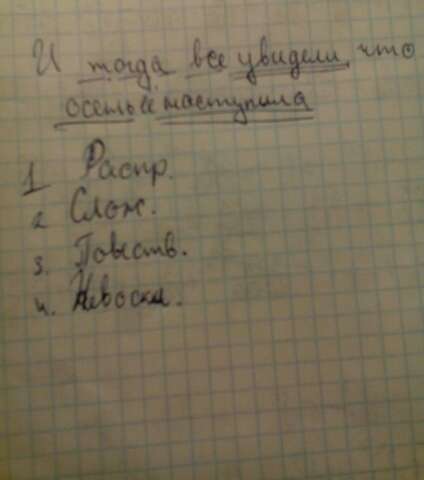 И тогда все увидели, что
осень наступила
1 Распр.
2 Слож.
3. Повеств.
4. Невоскл.